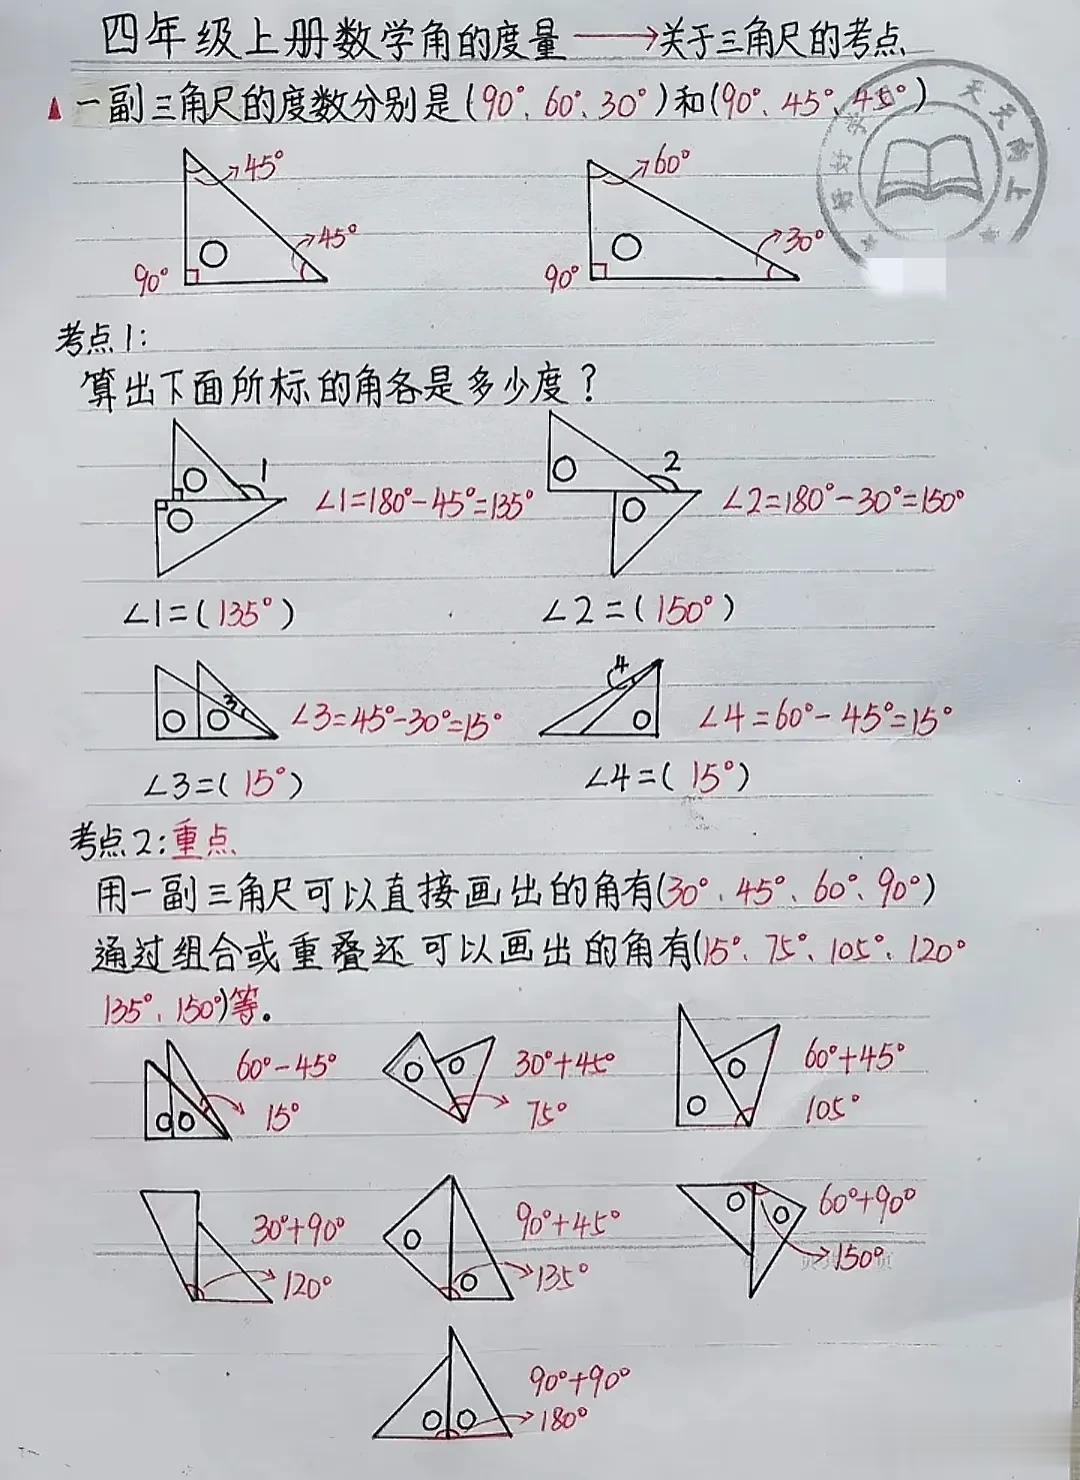 四年级上册数学角的度量——→关于三角尺的考点
一副三角尺的度数分别是(90°、60°、30°)和(90°、45°、45°)
45°
60°
45°
30°
90°
90°
考点1:
算出下面所标的角各是多少度?
1
2
∠1=180°-45°=135°
∠2=180°-30°=150°
∠1=(135°)
∠2=(150°)
3
4
∠3=45°-30°=15°
∠4=60°-45°=15°
∠3=(15°)
∠4=(15°)
考点2:重点
用一副三角尺可以直接画出的角有(30°、45°、60°、90°)
通过组合或重叠还可以画出的角有(15°、75°、105°、120°
135°、150°)等。
60°-45°
15°
30°+45°
75°
60°+45°
105°
30°+90°
120°
90°+45°
135°
60°+90°
150°
90°+90°
180°
天天向上